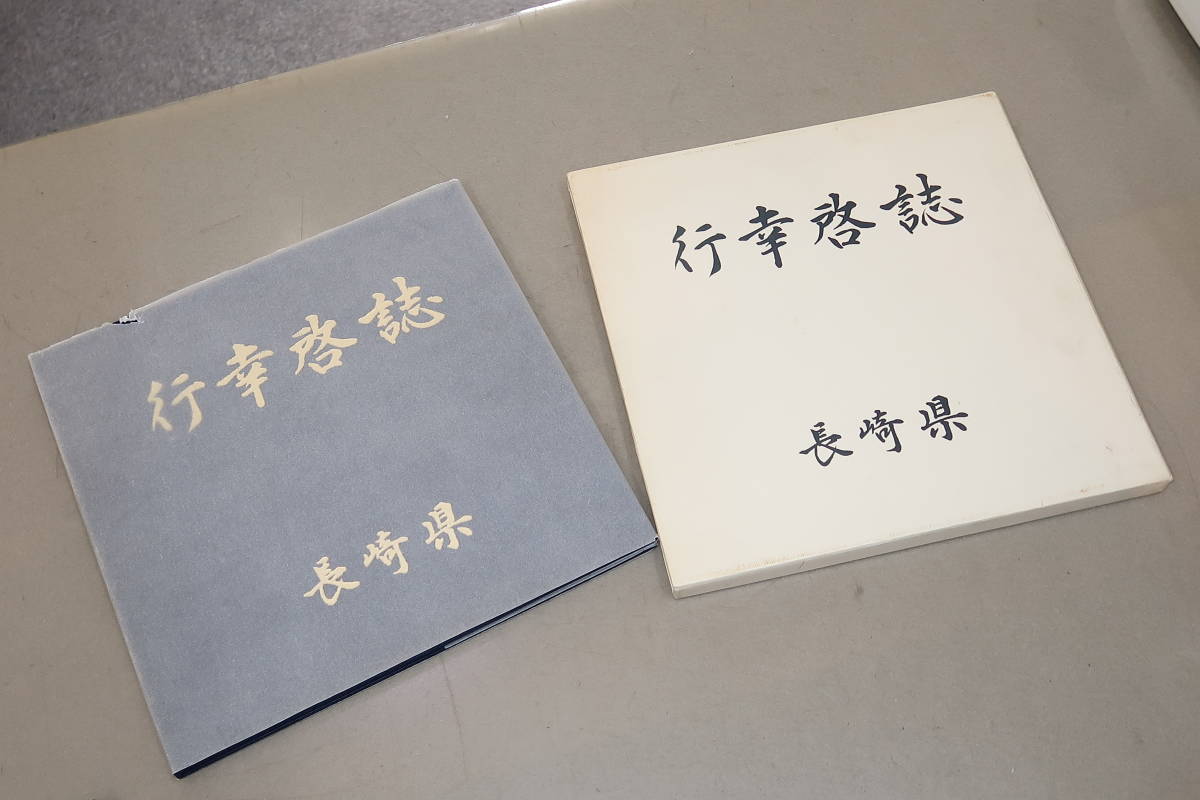 行幸啓誌
長崎県
行幸啓誌
長崎県